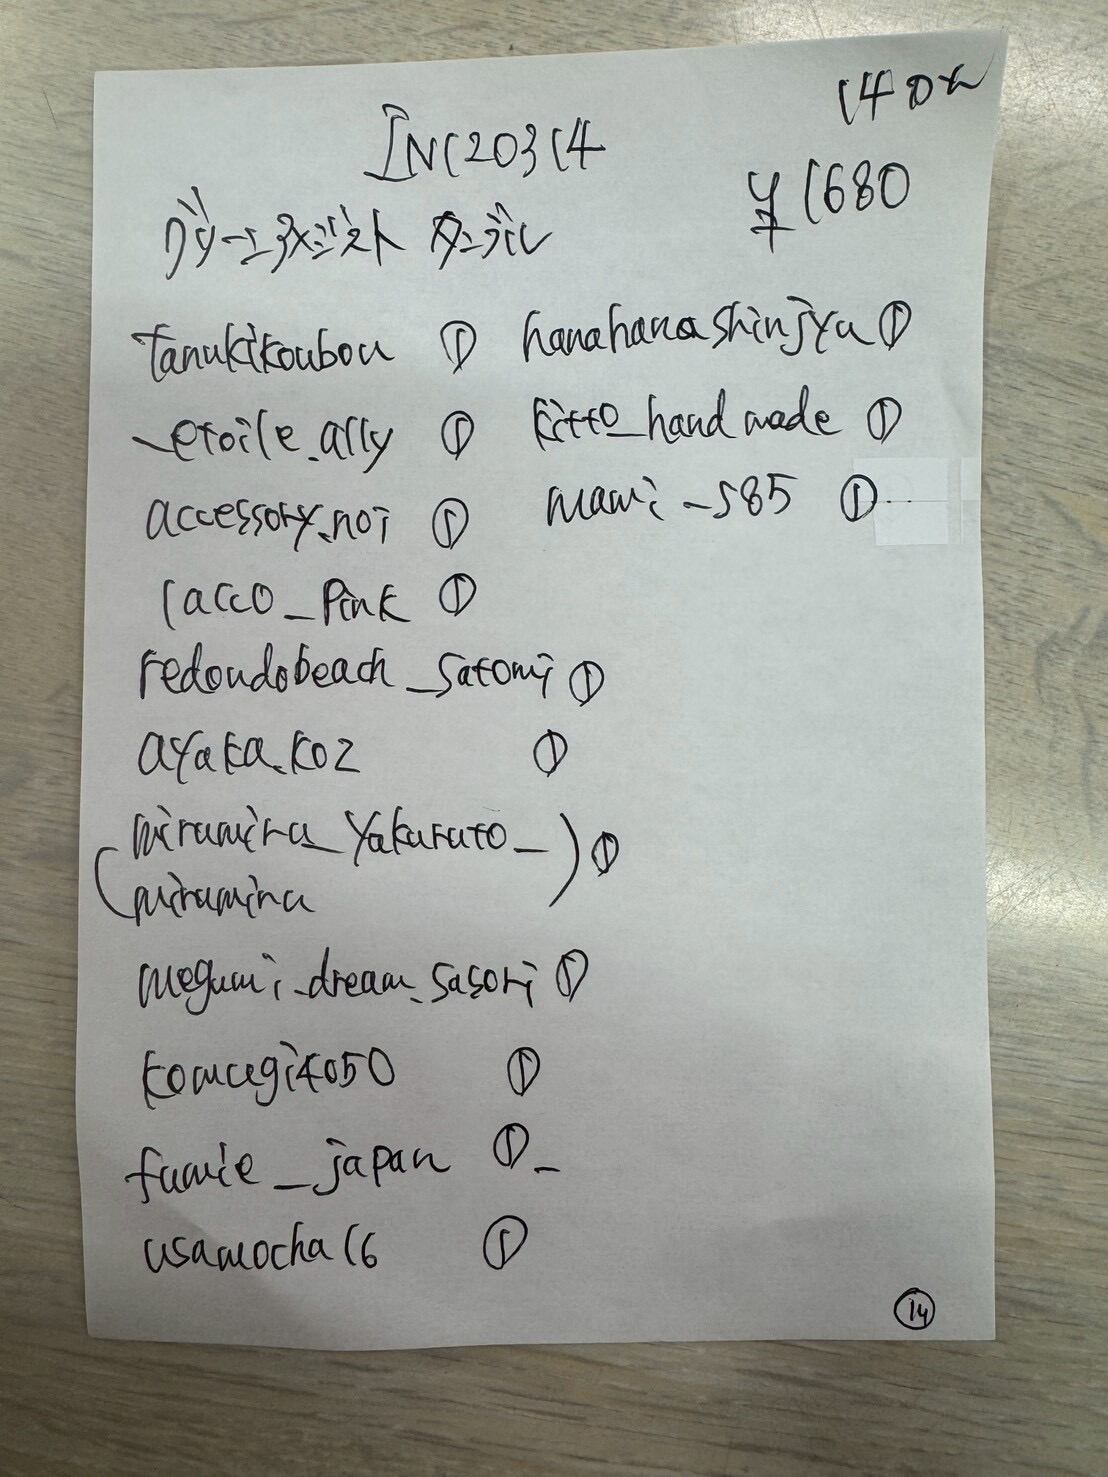 INC20314
140pc
¥1680
グリーンアメジスト タンブル
tanukikoubou ①
_etoile.ally ①
accessory.noi ①
lacco_pink ①
redondobeach_satomi ①
ayaka.koz ①
(miramira_yakurato_
miramira) ①
megumi.dream.sasori ①
komugi4050 ①
fumie_japan ①_
usamocha16 ①
hanahanashinjyu ①
kitto_handmade ①
mami_585 ①
⑭